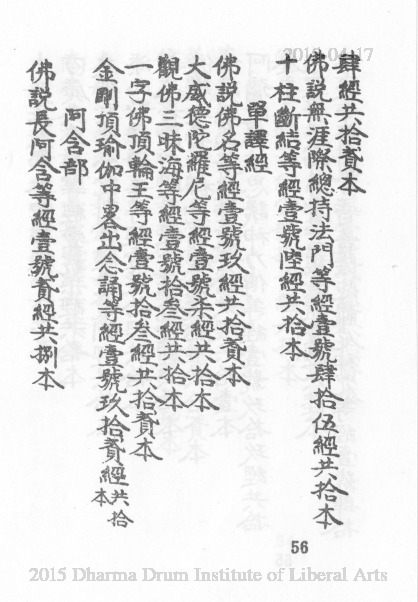 肆經共拾貳本
佛説無涯際總持法門等經壹號肆拾伍經共拾本
十柱斷結等經壹號陸經共拾本
單譯經
佛説佛名等經壹號玖經共拾貳本
大威德陀羅尼等經壹號柒經共拾本
觀佛三昧海等經壹號拾叁經共拾本
一字佛頂輪王等經壹號拾叁經共拾貳本
金剛頂瑜伽中畧出念誦等經壹號玖拾貳經共拾本
阿含部
佛説長阿含等經壹號貳經共捌本
56
2015 Dharma Drum Institute of Liberal Arts